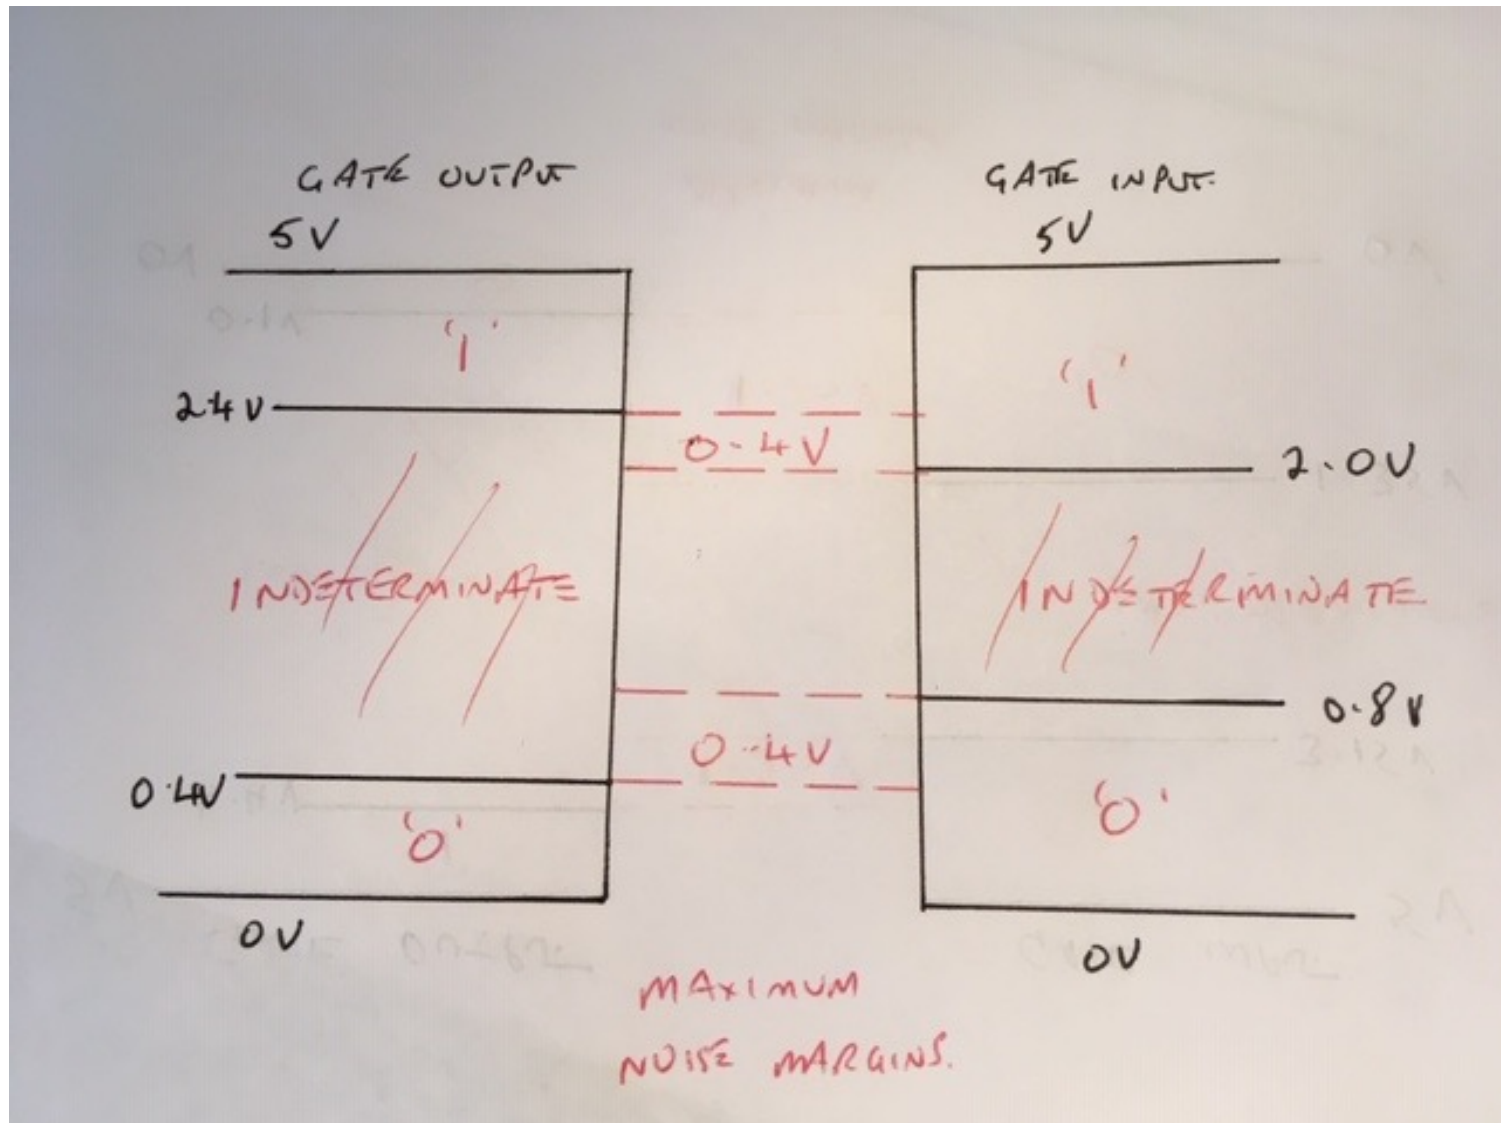 GATE OUTPUT
5V
'1'
2.4V
INDETERMINATE
0.4V
'0'
0V
0.4V
0.4V
GATE INPUT.
5V
'1'
2.0V
INDETERMINATE
0.8V
'0'
0V
MAXIMUM
NOISE MARGINS.